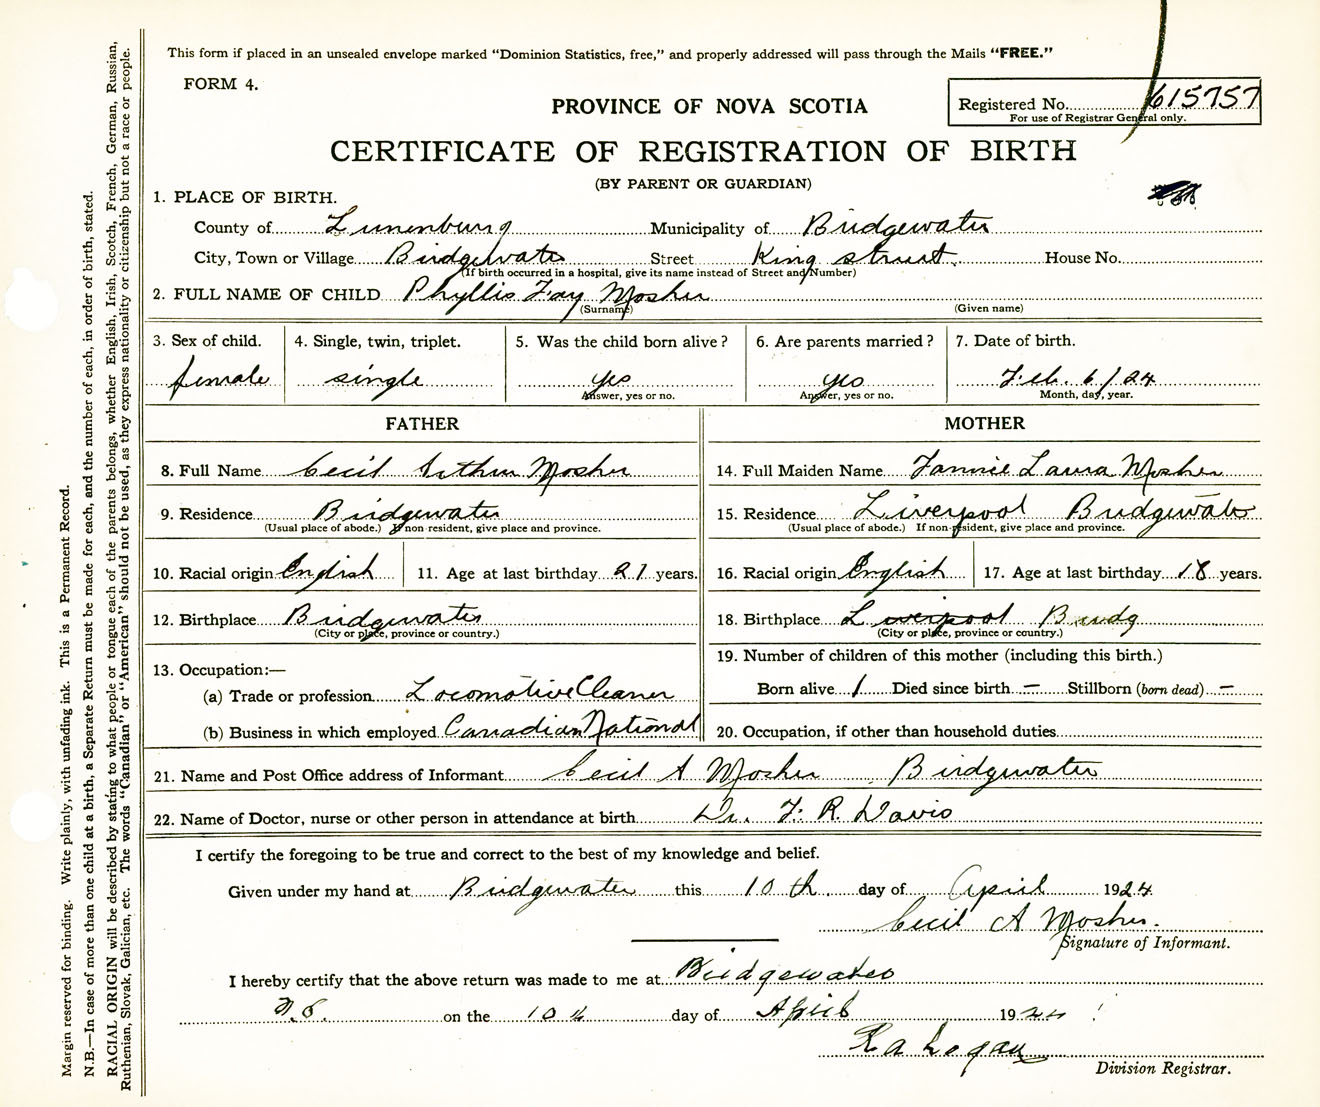 This form if placed in an unsealed envelope marked "Dominion Statistics, free," and properly addressed will pass through the Mails "FREE."
FORM 4.
PROVINCE OF NOVA SCOTIA
Registered No. 615757
For use of Registrar General only.
CERTIFICATE OF REGISTRATION OF BIRTH
(BY PARENT OR GUARDIAN)
1. PLACE OF BIRTH.
County of Lunenburg Municipality of Bridgewater
City, Town or Village Bridgewater Street King street House No.
(If birth occurred in a hospital, give its name instead of Street and Number)
2. FULL NAME OF CHILD Phyllis Fay Mosher
(Surname) (Given name)
3. Sex of child. 4. Single, twin, triplet. 5. Was the child born alive? 6. Are parents married? 7. Date of birth.
female single yes yes Feb. 6/24
Answer, yes or no. Answer, yes or no. Month, day, year.
FATHER MOTHER
8. Full Name Cecil Arthur Mosher 14. Full Maiden Name Fannie Laura Mosher
9. Residence Bridgewater 15. Residence Liverpool Bridgewater
(Usual place of abode.) If non-resident, give place and province. (Usual place of abode.) If non-resident, give place and province.
10. Racial origin English 11. Age at last birthday 21 years. 16. Racial origin English 17. Age at last birthday 18 years.
12. Birthplace Bridgewater 18. Birthplace Liverpool Bridg
(City or place, province or country.) (City or place, province or country.)
13. Occupation:— 19. Number of children of this mother (including this birth.)
(a) Trade or profession Locomotive Cleaner Born alive 1 Died since birth — Stillborn (born dead) —
(b) Business in which employed Canadian National 20. Occupation, if other than household duties
21. Name and Post Office address of Informant Cecil A Mosher Bridgewater
22. Name of Doctor, nurse or other person in attendance at birth Dr. F. R. Davis
I certify the foregoing to be true and correct to the best of my knowledge and belief.
Given under my hand at Bridgewater this 10th day of April 1924
Cecil A Mosher.
Signature of Informant.
I hereby certify that the above return was made to me at Bridgewater
N.S. on the 10th day of April 1924
R a Logan
Division Registrar.
Margin reserved for binding. Write plainly, with unfading ink. This is a Permanent Record.
N.B.—In case of more than one child at a birth, a Separate Return must be made for each, and the number of each, in order of birth, stated.
RACIAL ORIGIN will be described by stating to what people or tongue each of the parents belongs, whether English, Irish, Scotch, French, German, Russian,
Ruthenian, Slovak, Galician, etc. The words "Canadian" or "American" should not be used, as they express nationality or citizenship but not a race or people.